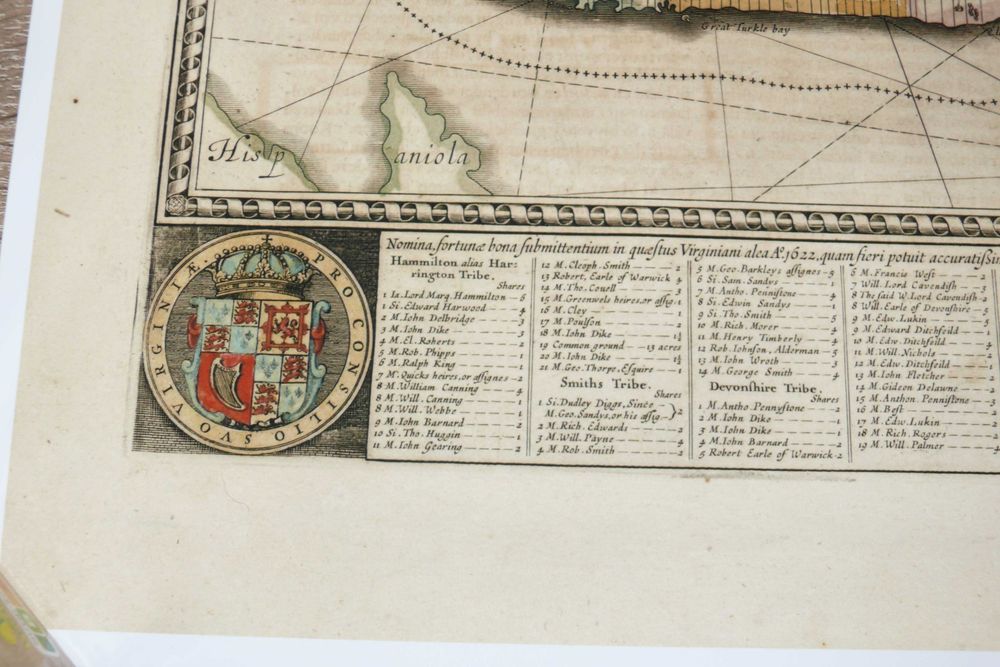 Great Turkle bay
Hisp aniola
PRO CONSILIO SVO VIRGINIÆ.
Nomina, fortunæ bona submittentium in quæstus Virginiani alea Aº. 1622. quam fieri potuit
Hammilton alias Har:
rington Tribe.
Shares
1 Ia. Lord Marq. Hammilton - 6
1 Si. Edward Harwood - 4
2 M. Iohn Delbridge - 3
3 M. Iohn Dike - 3
4 M. El. Roberts - 2
5 M. Rob. Phipps - 1
6 M. Ralph King - 1
7 M. Quicks heires, or assignes - 2
8 M. William Canning - 4
8 M. Will. Canning - 1
8 M. Will. Webbe - 1
9 M. Iohn Barnard - 2
10 Si. Tho. Huggin - 1
11 M. Iohn Gearing - 2
12 M. Cleoph. Smith - 2
13 Robert, Earle of Warwick 4
14 M. Tho. Covell - 3
15 M. Greenwels heires, or assig. 1
16 M. Cley - 1
17 M. Poulson - 2
18 M. Iohn Dike - 1½
19 Common ground - 13 acres
20 M. Iohn Dike - 1½
21 M. Geo. Thorpe, Esquire - 1
Smiths Tribe.
Shares
1 Si. Dudley Diggs, Since -
M. Geo. Sandys, or his assig - )2
2 M. Rich. Edwards - 2
3 M. Will. Payne - 4
4 M. Rob. Smith - 2
5 M. Geo. Barkleys assignes - 5
6 Si. Sam. Sandys - 1
7 M. Antho. Pennistone - 4
8 Si. Edwin Sandys - 5
9 Si. Tho. Smith - 5
10 M. Rich. Morer - 4
11 M. Henry Timberly - 4
12 Rob. Iohnson, Alderman - 5
13 M. Iohn Wroth - 3
14 M. George Smith - 4
Devonshire Tribe.
Shares
1 M. Antho. Pennystone - 2
2 M. Iohn Dike - 1
3 M. Iohn Dike - 1
4 M. Iohn Barnard - 2
5 Robert Earle of Warwick - 2
6 M. Francis West - 2
7 Will. Lord Cavendish - 3
8 The said W. Lord Cavendish - 2
8 Will. Earle of Devonshire - 5
9 M. Edw. Lukin - 1
9 M. Edward Ditchfeild - 1
10 M. Edw. Ditchfeild - 1
11 M. Will. Nichols - 2
12 M. Edw. Ditchfeild - 1
13 M. Iohn Fletcher - 2
14 M. Gideon Delawne - 2
15 M. Anthon. Pennistone - 3
16 M. Best - 2
17 M. Edw. Lukin - 2
18 M. Rich. Rogers - 2
19 M. Will. Palmer - 4